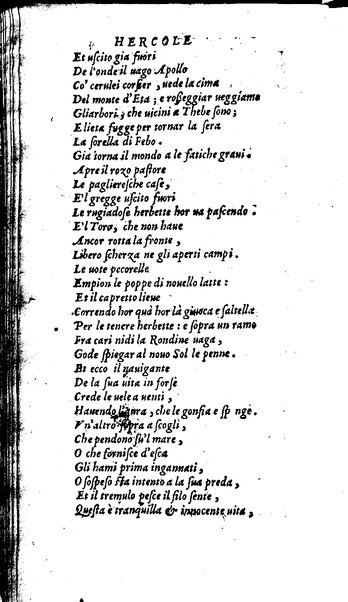 HERCOLE
Et uſcito gia fuori
De l'onde il uago Apollo
Co' cerulei corſier, uede la cima
Del monte d'Eta; e roßeggiar ueggiamo
Gliarbori, che uicini a Thebe ſono;
E lieta fugge per tornar la ſera
La ſorella di Febo.
Gia torna il mondo a le fatiche graui.
Apre il rozo paſtore
Le pagliereſche caſe,
E'l gregge uſcito fuori
Le rugiadoſe herbette hor ua paſcendo.
E'l Toro, che non haue
Ancor rotta la fronte,
Libero ſcherza ne gli aperti campi.
Le uote pecorelle
Empion le poppe di nouello latte:
Et il capretto lieue
Correndo hor quà hor là giuoca e ſaltella
Per le tenere herbette: e ſopra un ramo
Fra cari nidi la Rondine uaga,
Gode ſpiegar al nouo Sol le penne.
Et ecco il nauigante
De la ſua uita in forſe
Crede le uele a uenti,
Hauendo l'aura, che le gonfia e ſp nge.
Vn'altro ſopra a ſcogli,
Che pendono ſu'l mare,
O che forniſce d'eſca
Gli hami prima ingannati,
O ſoſpeſo ſta intento a la ſua preda,
Et il tremulo peſce il filo ſente,
Queſta è tranquilla & innocente uita,